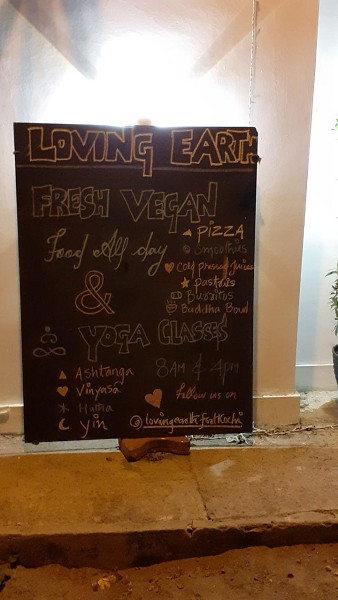 LOVING EARTH
FRESH VEGAN
Food All day
PIZZA
Smoothies
Cold pressed Juices
Pastries
Burritos
Buddha Bowl
&
YOGA CLASSES
Ashtanga
Vinyasa
Hatha
Yin
8AM & 4pm
follow us on
@lovingearthfortkochi